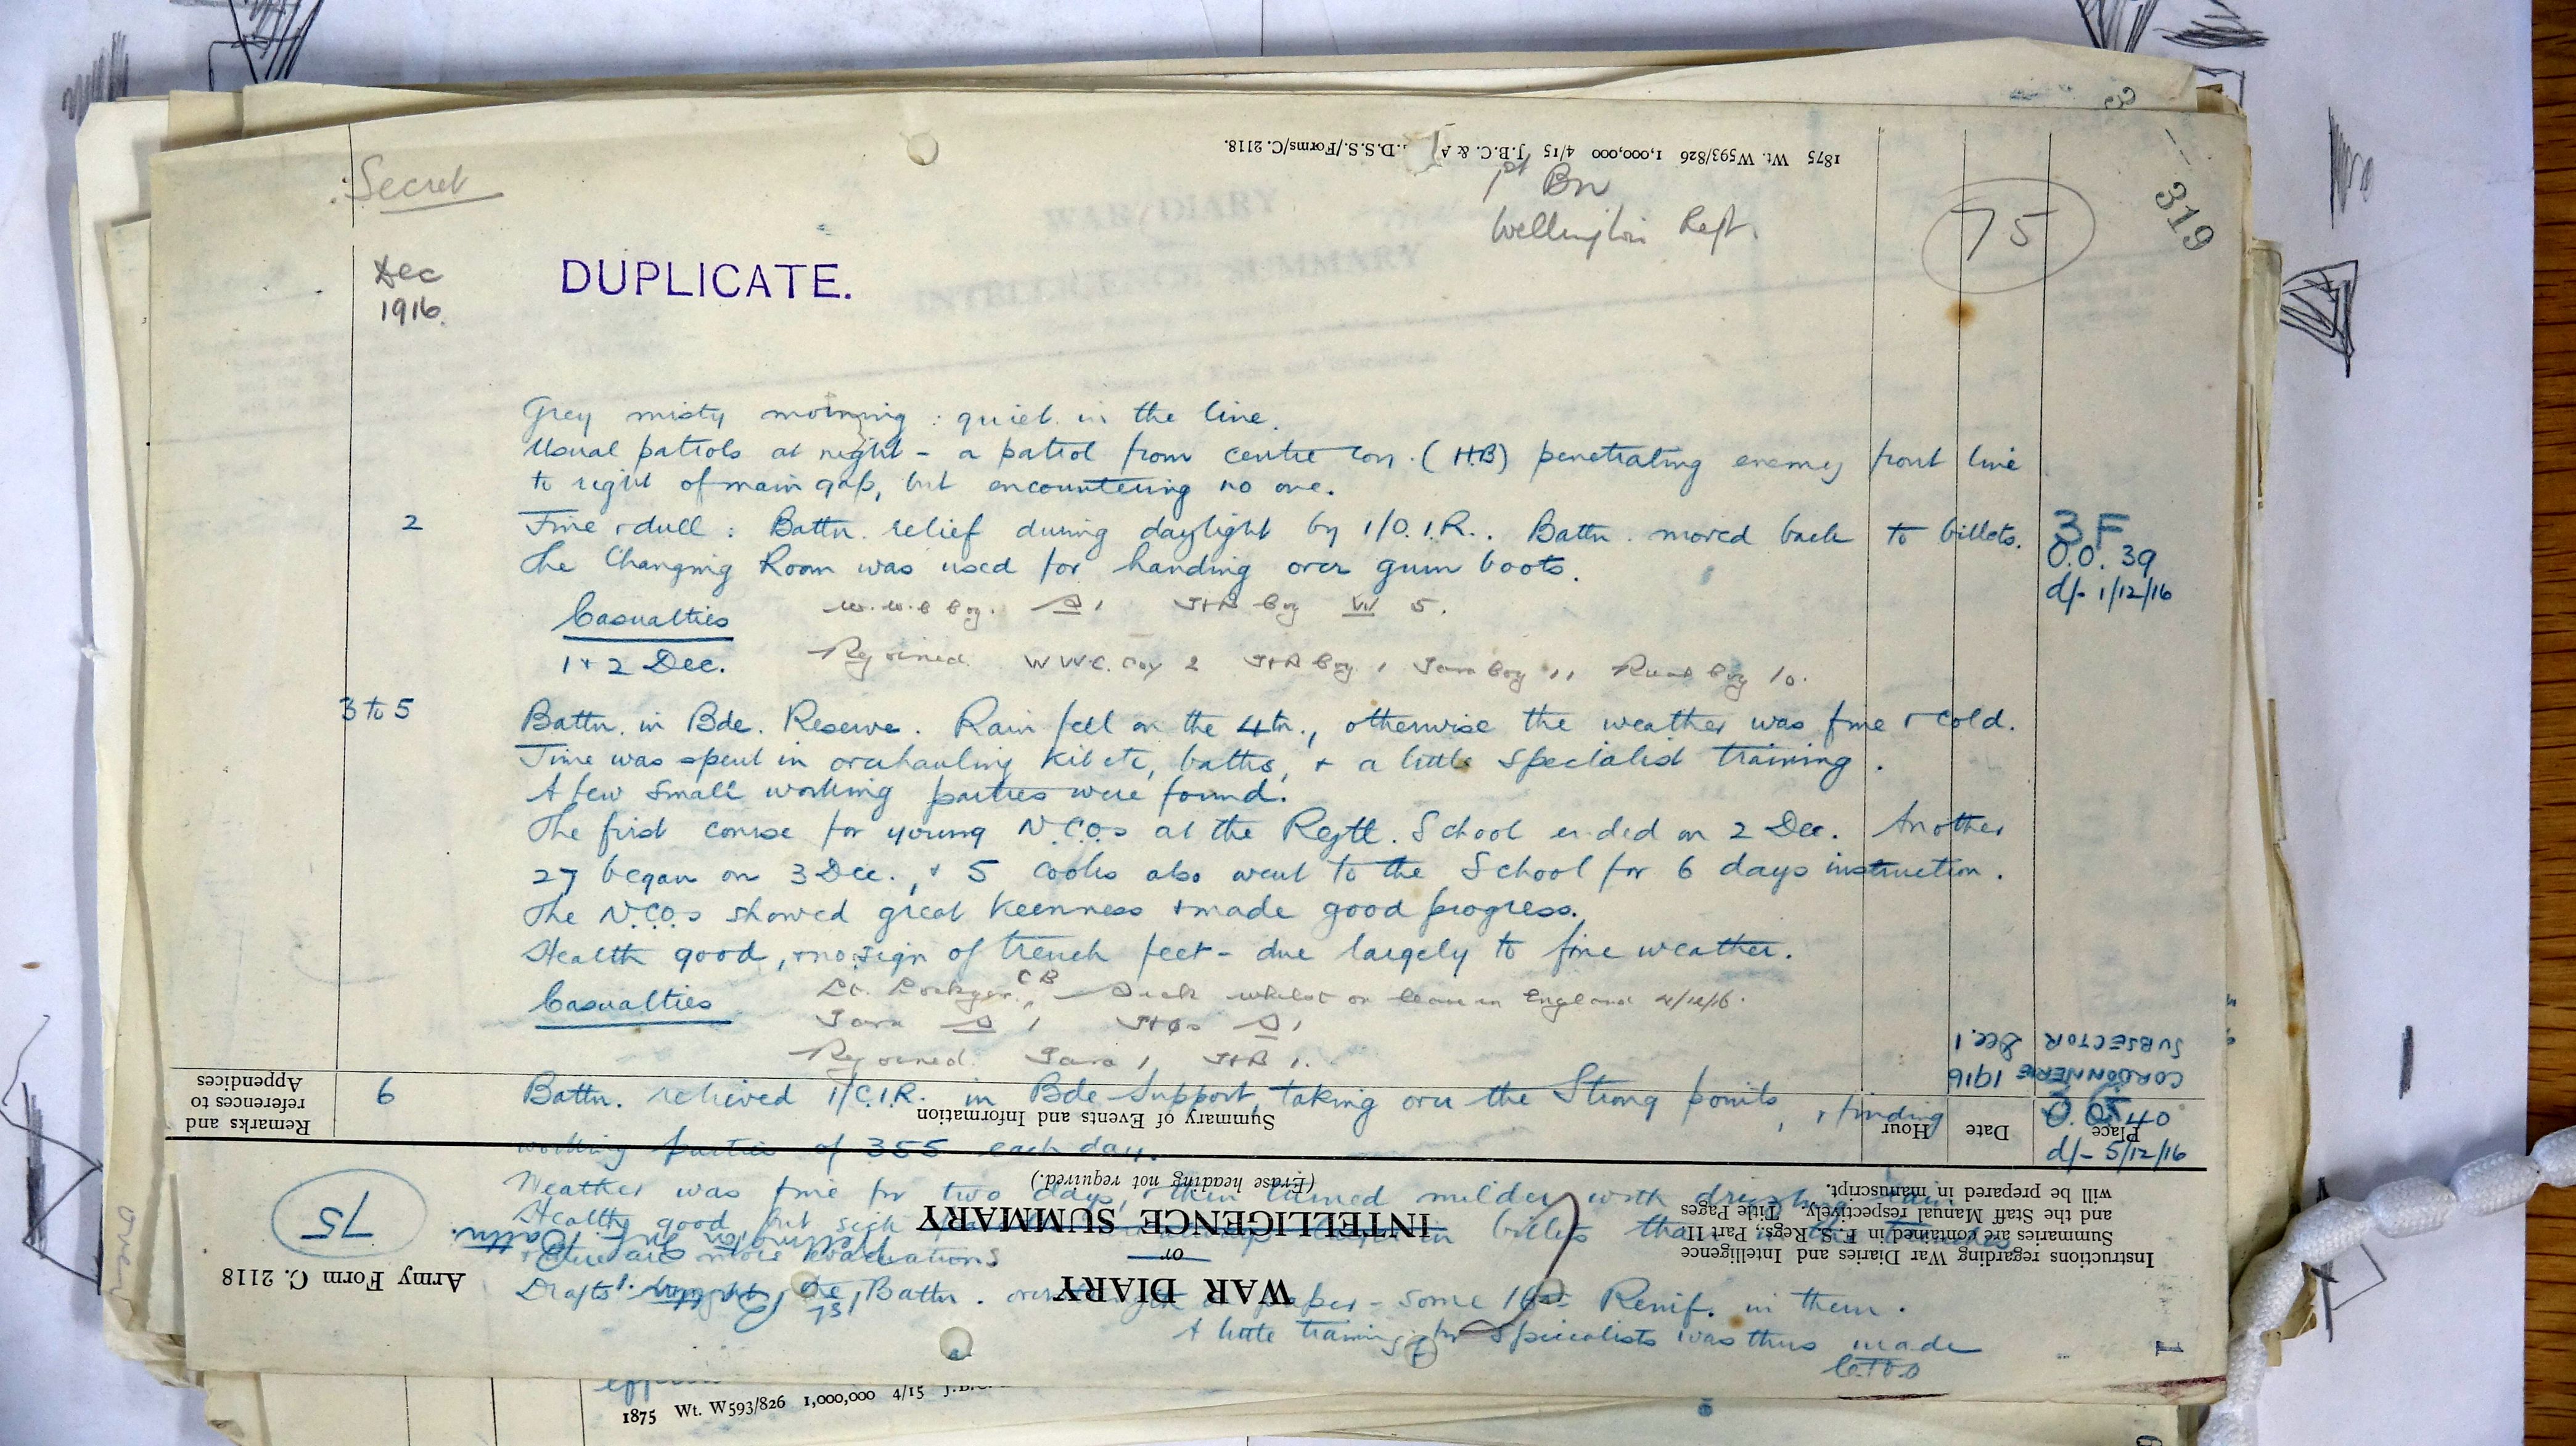 1875 Wt. W593/826 1,000,000 4/15 J.B.C. & A. D.S.S./Forms/C. 2118.
Secret
1st Bn
Wellington Regt.
75
319
Dec
1916.
DUPLICATE.
Grey misty morning : quiet in the line.
Usual patrols at night - a patrol from centre Coy. (H.B) penetrating enemy front line
to right of main gap, but encountering no one.
2 Fine & dull : Battn. relief during daylight by 1/O.I.R.. Battn. moved back to billets.
3F
O.O. 39
d/- 1/12/16
The Changing Room was used for handing over gum boots.
Casualties W.W.C Coy. S 1 H+B Coy W 5.
1 + 2 Dec. Rejoined W W C. Coy 2 H+B Coy 1 Tara Coy 11 Rua Coy 10.
3 to 5 Battn. in Bde. Reserve. Rain fell on the 4th., otherwise the weather was fine & cold.
Time was spent in overhauling kit etc, baths, + a little specialist training.
A few small working parties were found.
The first course for young N.C.Os at the Regtl. School ended on 2 Dec. Another
27 began on 3 Dec., & 5 cooks also went to the School for 6 days instruction.
The N.C.Os showed great keenness & made good progress.
Health good, & no sign of trench feet - due largely to fine weather.
Casualties Lt. C B Sick whilst on leave in England 4/12/16.
Tara S 1 S 1
Rejoined. Tara 1 H+B 1.
SUBSECTOR Dec. 1
CORDONNERIE 1916
6 Battn. relieved 1/C.I.R. in Bde Support, taking over the Strong points, & finding
O.O. 40
d/- 5/12/16
working parties of 355 each day.
Weather was fine for two days, then turned milder with
Health good, but sick in billets than
& there are more evacuations
Drafts Battn. paper - some 16th Reinf. in them.
A little training for specialists was thus made
Remarks and references to Appendices
Summary of Events and Information
Hour
Date
Place
(Erase heading not required.)
INTELLIGENCE SUMMARY
or
WAR DIARY
Instructions regarding War Diaries and Intelligence
Summaries are contained in F.S. Regs., Part II
and the Staff Manual respectively. Title Pages
will be prepared in manuscript.
75
Army Form C. 2118
1st Battn.
over
1875 Wt. W593/826 1,000,000 4/15